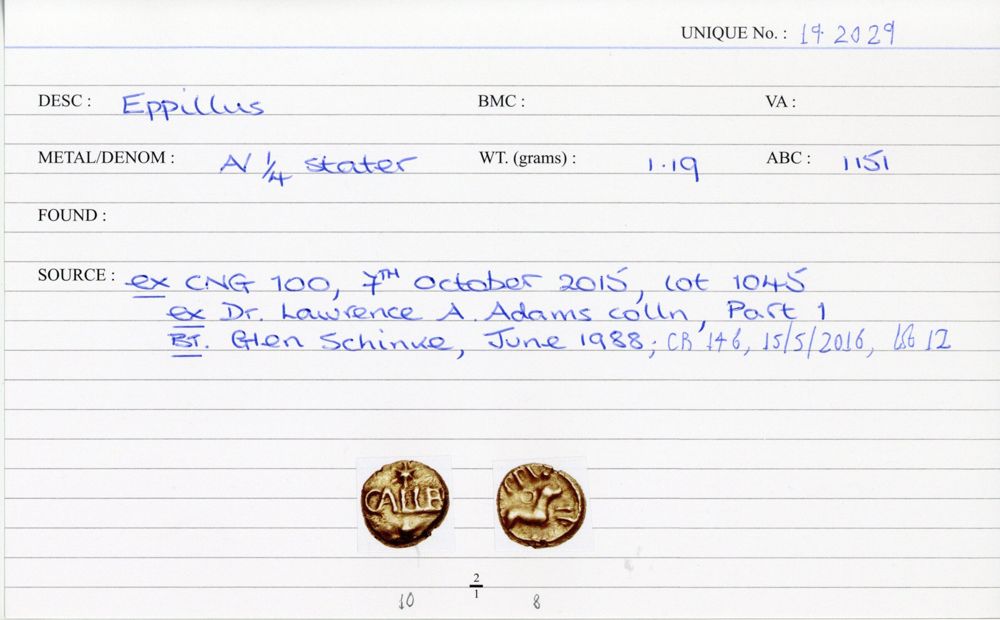 UNIQUE No. : 19.2029
DESC : Eppillus BMC : VA :
METAL/DENOM : AV 1/4 stater WT. (grams) : 1.19 ABC : 1151
FOUND :
SOURCE : ex CNG 100, 7TH October 2015, lot 1045
ex Dr. Lawrence A. Adams colln, Part 1
BT. Glen Schinke, June 1988; CR 146, 15/5/2016, 12
CALLE
2/1
10 8